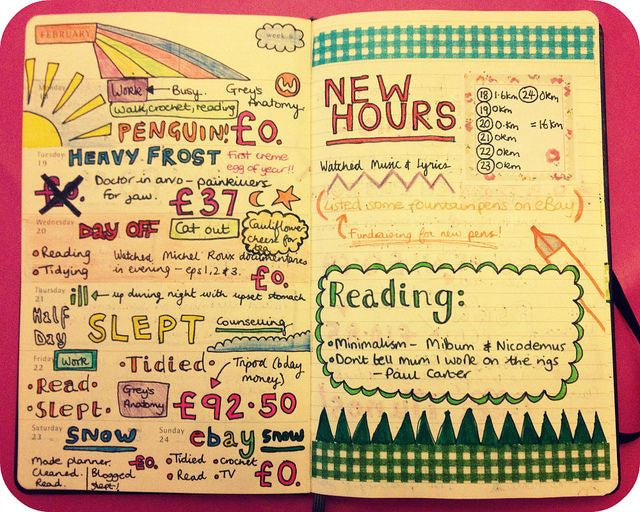 FEBRUARY
week 8
Monday
Work ← Busy.
Grey's
Anatomy.
W
Walk, crochet, reading
PENGUIN! £0.
Tuesday
19
HEAVY FROST
First creme
egg of year!!
£0.
Doctor in arvo - painkillers
for jaw.
£37
Wednesday
20
DAY OFF
Cat out
Cauliflower
cheese for
tea
• Reading
• Tidying
Watched Michel Roux documentaries
in evening - eps 1, 2 & 3.
£0.
Thursday
21
ill ← up during night with upset stomach
Half
Day
SLEPT
Counselling
Friday
22
Work
• Tidied
• Tripod (bday
money)
• Read •
• Slept •
Grey's
Anatomy
£92.50
Saturday
23
SNOW
Sunday
24
ebay
SNOW
Made planner.
Cleaned.
Read.
£0.
Blogged
Slept!
• Tidied • Crochet
• Read • TV
£0.
NEW
HOURS
18 1.6km 24 0km
19 0km
20 0km = 16km
21 0km
22 0km
23 0km
Watched Music & Lyrics
(Listed some fountain pens on eBay)
Fundraising for new pens!
Reading:
• Minimalism - Milburn & Nicodemus
• Don't tell mum I work on the rigs
- Paul Carter